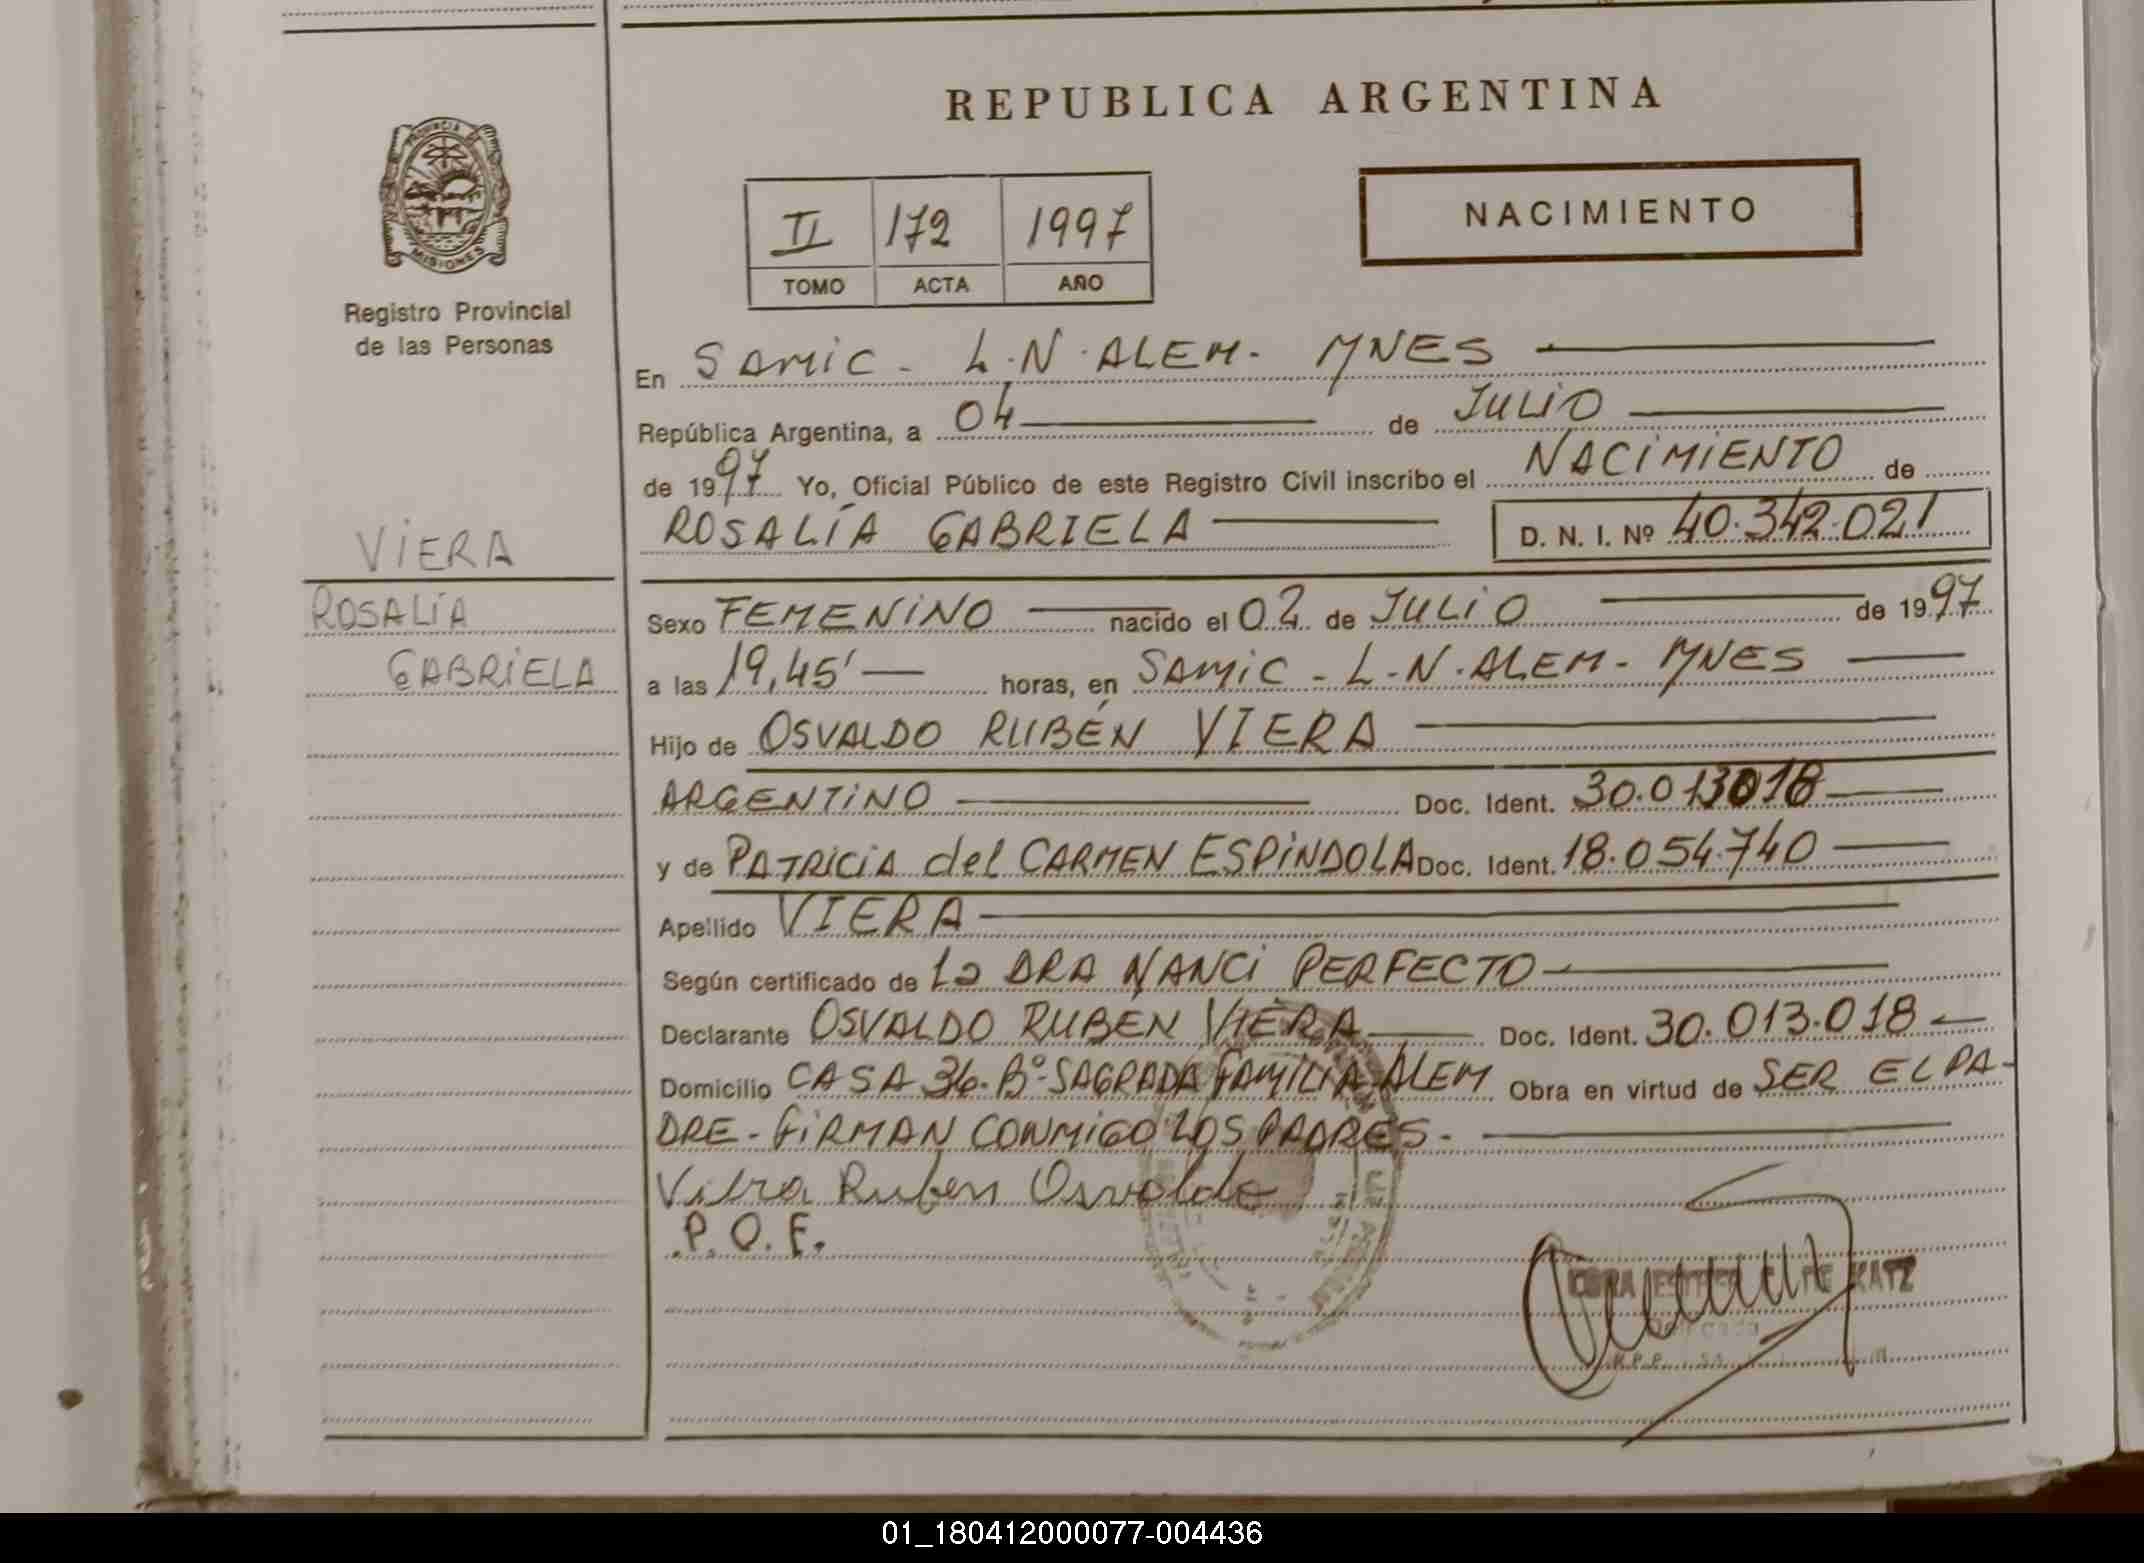 REPUBLICA ARGENTINA
PROVINCIA DE
MISIONES
Registro Provincial
de las Personas
II 172 1997
TOMO ACTA AÑO
NACIMIENTO
En SAMIC - L.N. ALEM - MNES
República Argentina, a 04 de JULIO
de 1997 Yo, Oficial Público de este Registro Civil inscribo el NACIMIENTO de
ROSALÍA GABRIELA D. N. I. Nº 40.342.021
VIERA
ROSALÍA
GABRIELA
Sexo FEMENINO nacido el 02 de JULIO de 1997
a las 19,45' horas, en SAMIC - L-N. ALEM - MNES
Hijo de OSVALDO RUBÉN VIERA
ARGENTINO Doc. Ident. 30.013018
y de PATRICIA del CARMEN ESPINDOLA Doc. Ident. 18.054.740
Apellido VIERA
Según certificado de La DRA NANCI PERFECTO
Declarante OSVALDO RUBEN VIERA Doc. Ident. 30.013.018
Domicilio CASA 36. Bº SAGRADA FAMILIA ALEM Obra en virtud de SER EL PA-
DRE - FIRMAN CONMIGO LOS PADRES.
Viera Ruben Osvaldo
P.O.F.
KATZ
01_180412000077-004436